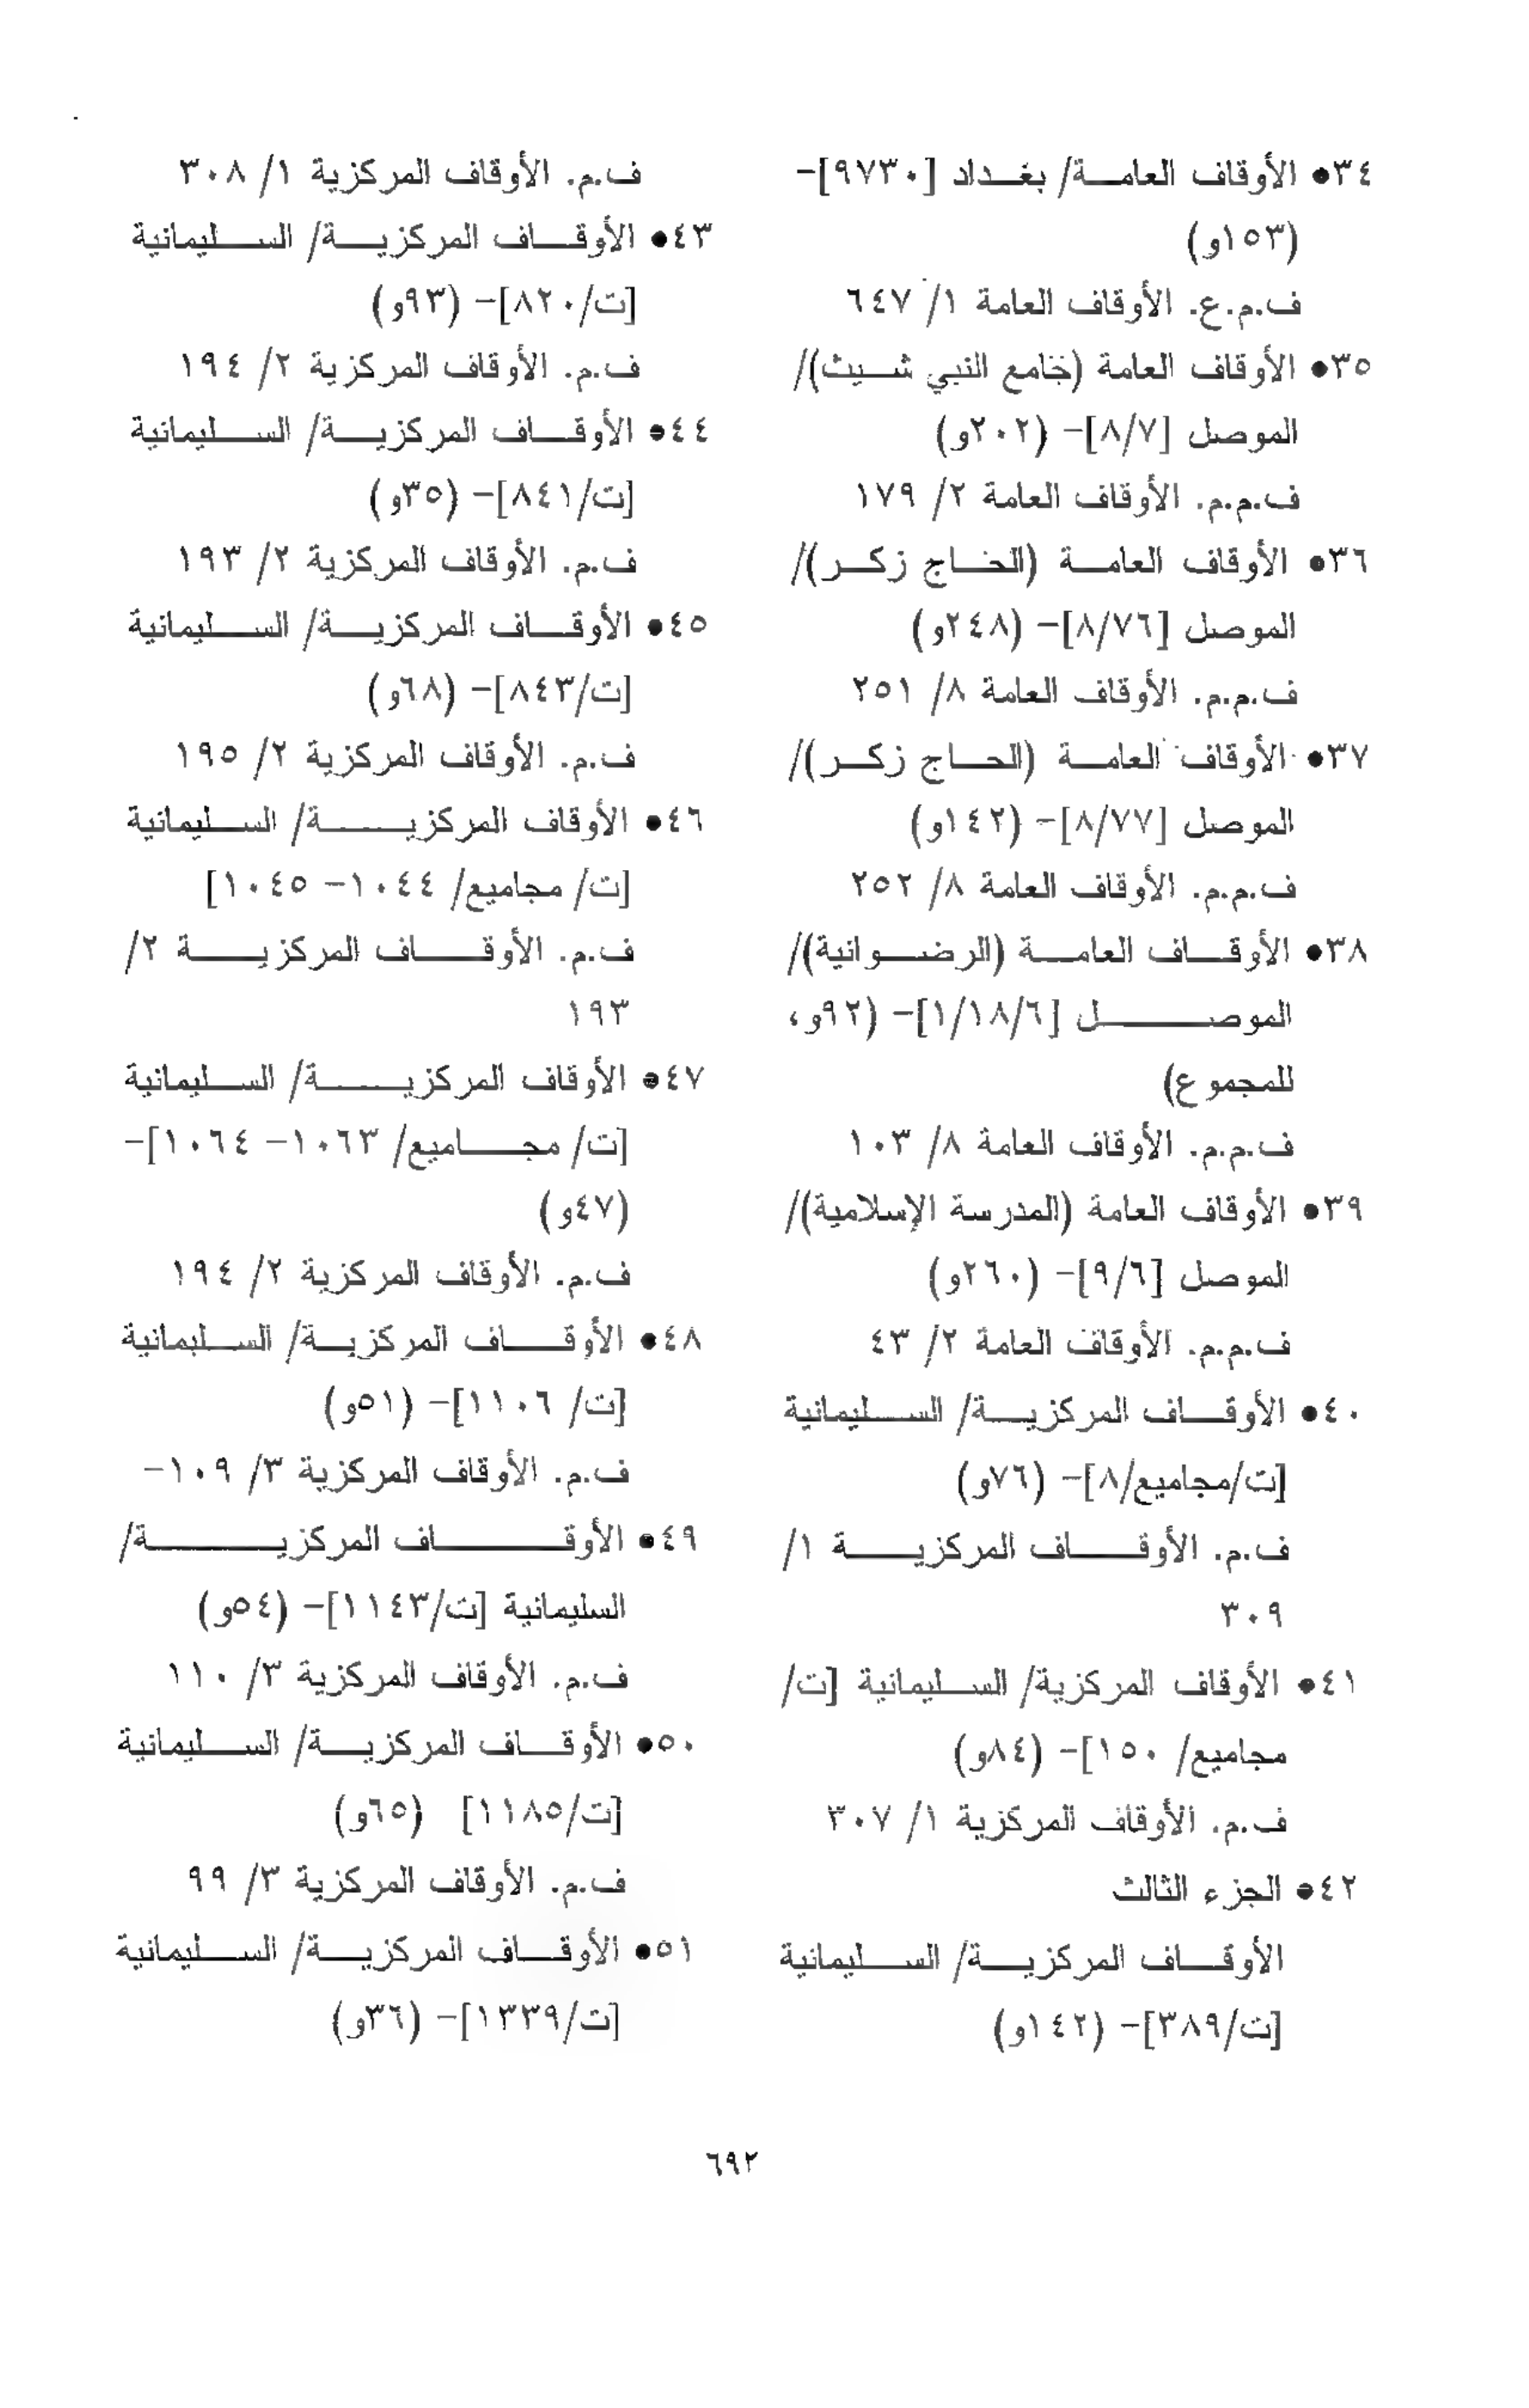 ٣٤● الأوقاف العامة/ بغداد [٩٧٣٠]-
(١٥٣و)
ف.م.ع. الأوقاف العامة ١/ ٦٤٧
٣٥● الأوقاف العامة (جامع النبي شيث)/
الموصل [٨/٧]- (٢٠٢و)
ف.م.م. الأوقاف العامة ٢/ ١٧٩
٣٦● الأوقاف العامة (الحاج زكر)/
الموصل [٨/٧٦]- (٢٤٨و)
ف.م.م. الأوقاف العامة ٨/ ٢٥١
٣٧● الأوقاف العامة (الحاج زكر)/
الموصل [٨/٧٧]- (١٤٢و)
ف.م.م. الأوقاف العامة ٨/ ٢٥٢
٣٨● الأوقاف العامة (الرضوانية)/
الموصل [١/١٨/٦]- (٩٢و،
للمجموع)
ف.م.م. الأوقاف العامة ٨/ ١٠٣
٣٩● الأوقاف العامة (المدرسة الإسلامية)/
الموصل [٩/٦]- (٢٦٠و)
ف.م.م. الأوقاف العامة ٢/ ٤٣
٤٠● الأوقاف المركزية/ السليمانية
[ت/مجاميع/٨]- (٧٦و)
ف.م. الأوقاف المركزية ١/
٣٠٩
٤١● الأوقاف المركزية/ السليمانية [ت/
مجاميع/ ١٥٠]- (٨٤و)
ف.م. الأوقاف المركزية ١/ ٣٠٧
٤٢● الجزء الثالث
الأوقاف المركزية/ السليمانية
[ت/٣٨٩]- (١٤٢و)
ف.م. الأوقاف المركزية ١/ ٣٠٨
٤٣● الأوقاف المركزية/ السليمانية
[ت/٨٢٠]- (٩٣و)
ف.م. الأوقاف المركزية ٢/ ١٩٤
٤٤● الأوقاف المركزية/ السليمانية
[ت/٨٤١]- (٣٥و)
ف.م. الأوقاف المركزية ٢/ ١٩٣
٤٥● الأوقاف المركزية/ السليمانية
[ت/٨٤٣]- (٦٨و)
ف.م. الأوقاف المركزية ٢/ ١٩٥
٤٦● الأوقاف المركزية/ السليمانية
[ت/ مجاميع/ ١٠٤٤- ١٠٤٥]
ف.م. الأوقاف المركزية ٢/
١٩٣
٤٧● الأوقاف المركزية/ السليمانية
[ت/ مجاميع/ ١٠٦٣- ١٠٦٤]-
(٤٧و)
ف.م. الأوقاف المركزية ٢/ ١٩٤
٤٨● الأوقاف المركزية/ السليمانية
[ت/ ١١٠٦]- (٥١و)
ف.م. الأوقاف المركزية ٣/ ١٠٩-
٤٩● الأوقاف المركزية/
السليمانية [ت/١١٤٣]- (٥٤و)
ف.م. الأوقاف المركزية ٣/ ١١٠
٥٠● الأوقاف المركزية/ السليمانية
[ت/١١٨٥] (٦٥و)
ف.م. الأوقاف المركزية ٣/ ٩٩
٥١● الأوقاف المركزية/ السليمانية
[ت/١٣٣٩]- (٣٦و)
٦٩٢